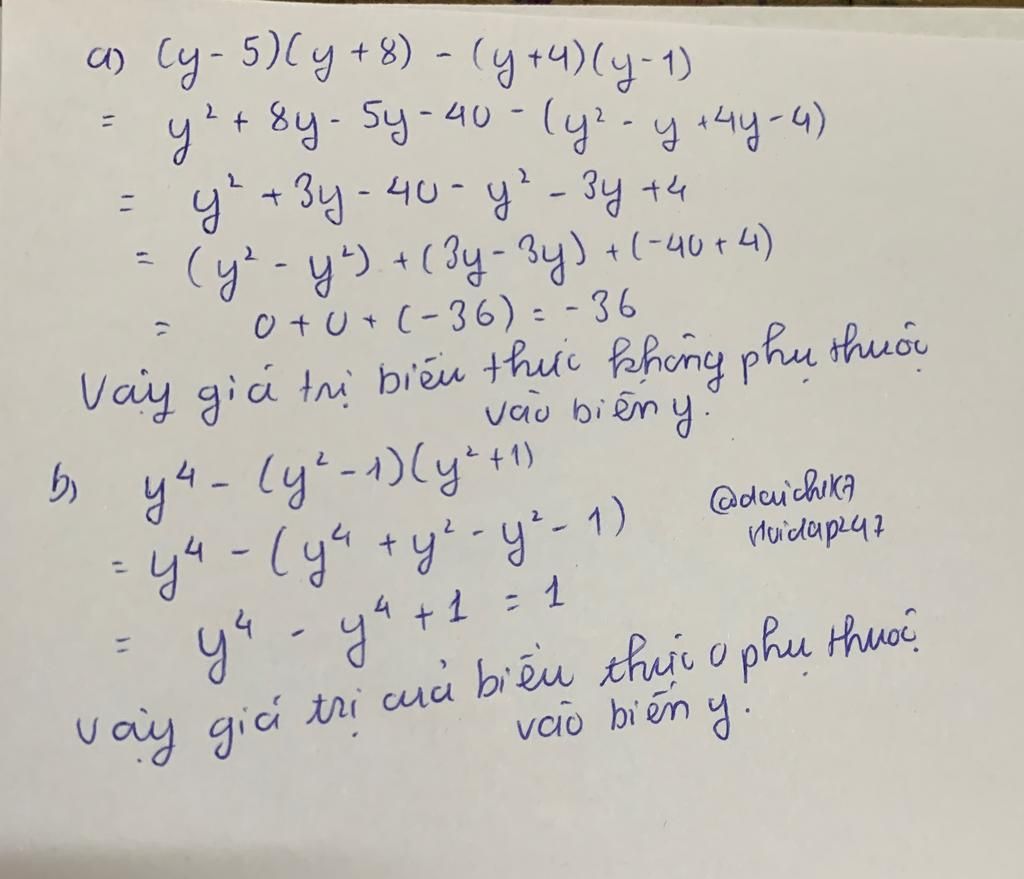 a) (y - 5)(y + 8) - (y + 4)(y - 1)
= y² + 8y - 5y - 40 - (y² - y + 4y - 4)
= y² + 3y - 40 - y² - 3y + 4
= (y² - y²) + (3y - 3y) + (-40 + 4)
= 0 + 0 + (-36) = -36
Vậy giá trị biểu thức không phụ thuộc
vào biến y.
b) y⁴ - (y² - 1)(y² + 1)
= y⁴ - (y⁴ + y² - y² - 1)
= y⁴ - y⁴ + 1 = 1
Vậy giá trị của biểu thức 0 phụ thuộc
vào biến y.
@daichik7
hoidap247